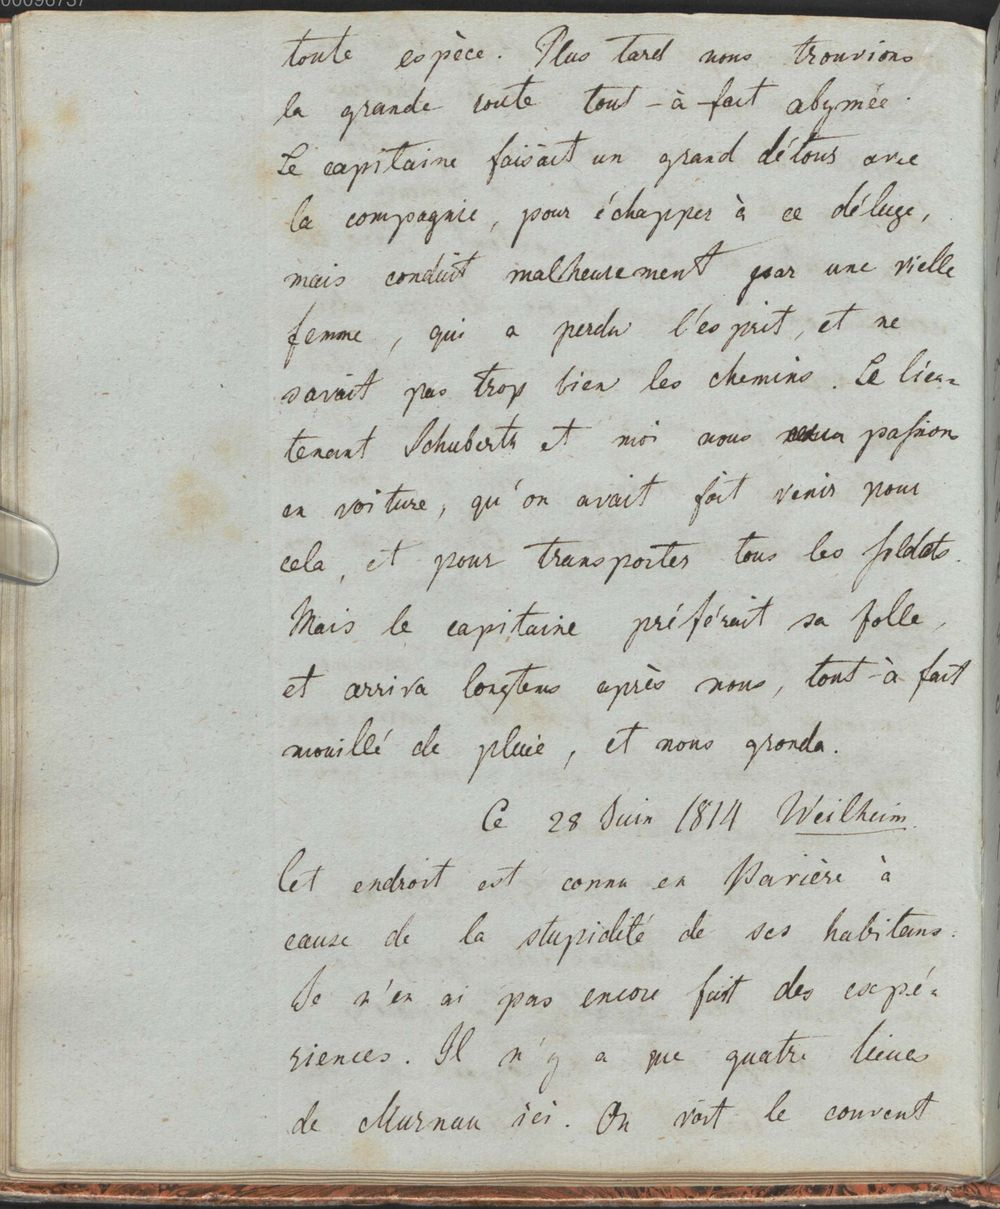 00096737
toute espèce. Plus tard nous trouvions
la grande route tout-à-fait abymée.
Le capitaine faisait un grand détour avec
la compagnie, pour échapper à ce déluge,
mais conduit malheurement par une vielle
femme, qui a perdu l'esprit, et ne
savait pas trop bien les chemins. Le lieu=
tenant Schubert et moi nous passions
en voiture, qu'on avait fait venir pour
cela, et pour transporter tous les soldats.
Mais le capitaine préférait sa folle,
et arriva longtems après nous, tout-à fait
mouillé de pluie, et nous gronda.
Ce 28 Juin 1814 Weilheim.
Cet endroit est connu en Bavière à
cause de la stupidité de ses habitans.
Je n'en ai pas encore fait des expé=
riences. Il n'y a que quatre lieues
de Murnau ici. On voit le couvent